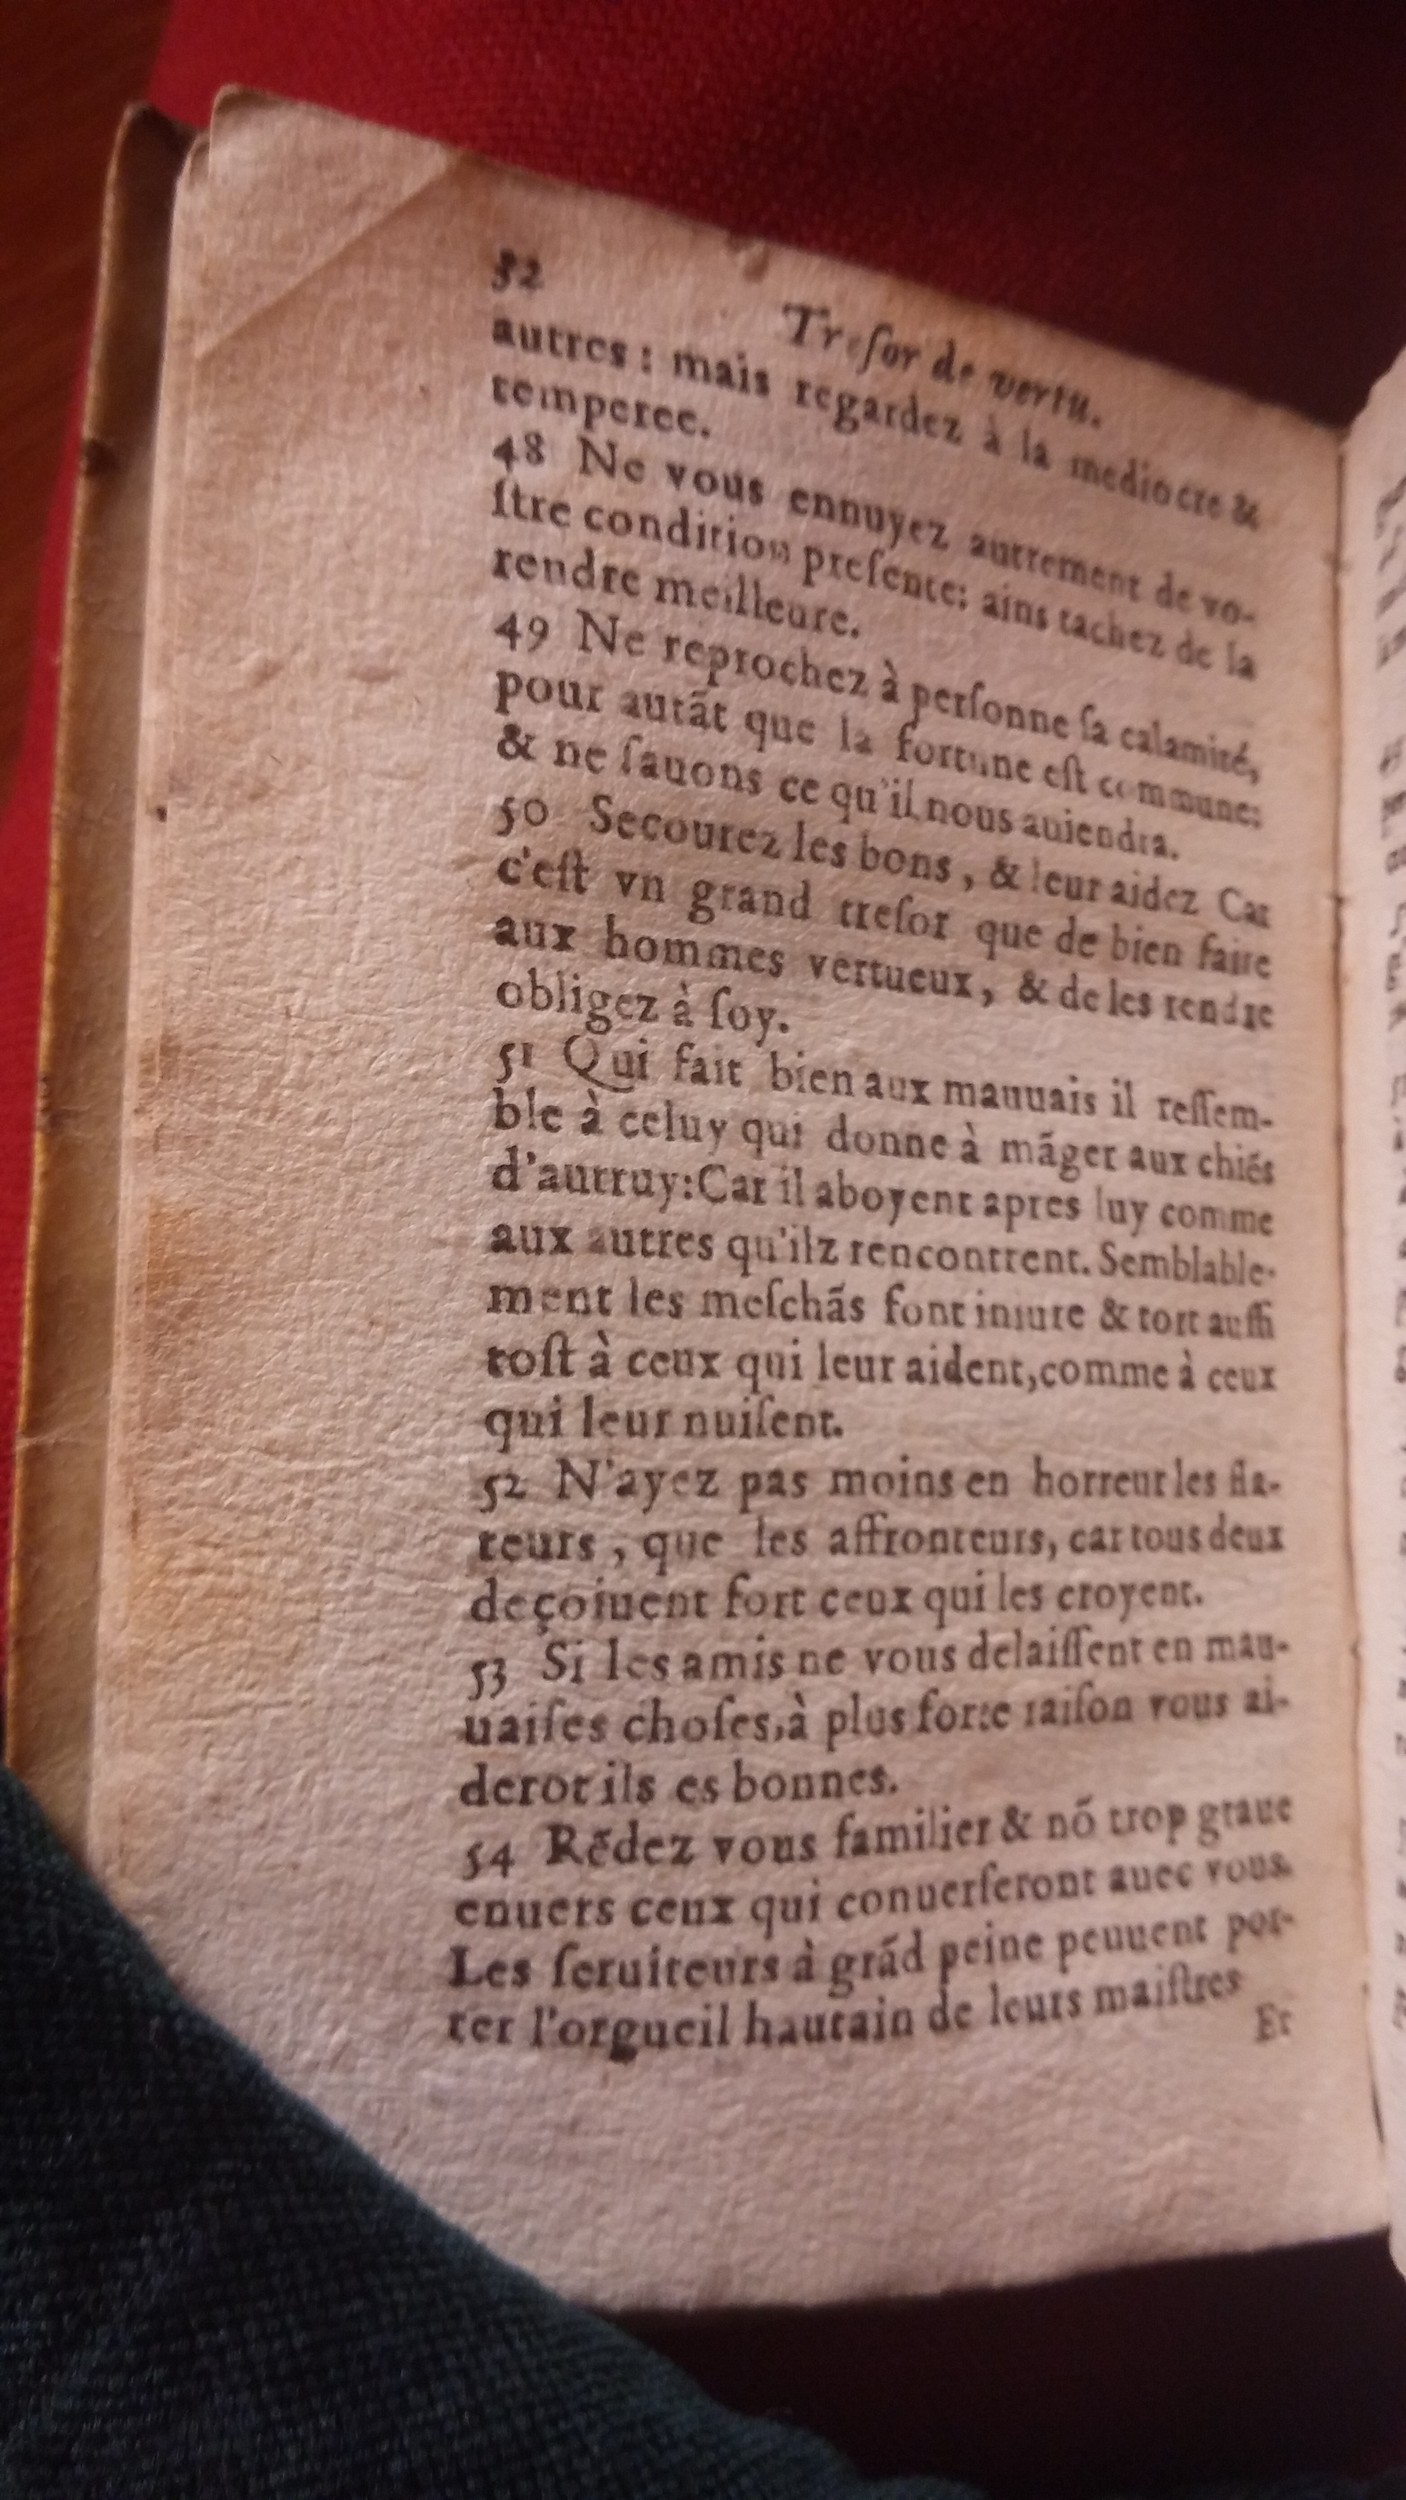 52
Treſor de vertu.
autres : mais regardez à la mediocre &
temperee.
48 Ne vous ennuyez autrement de vo-
ſtre condition preſente: ains tachez de la
rendre meilleure.
49 Ne reprochez à perſonne ſa calamité,
pour autãt que la fortune eſt commune:
& ne ſauons ce qu'il nous auiendra.
50 Secourez les bons, & leur aidez Car
c'eſt vn grand treſor que de bien faire
aux hommes vertueux, & de les rendre
obligez à ſoy.
51 Qui fait bien aux mauuais il reſſem-
ble à celuy qui donne à mãger aux chiẽs
d'autruy:Car il aboyent apres luy comme
aux autres qu'ilz rencontrent. Semblable-
ment les meſchãs font iniure & tort auſſi
toſt à ceux qui leur aident,comme à ceux
qui leur nuiſent.
52 N'ayez pas moins en horreur les fla-
teurs, que les affronteurs, car tous deux
deçoiuent fort ceux qui les croyent.
53 Si les amis ne vous delaiſſent en mau-
uaiſes choſes,à plus forte raiſon vous ai-
derot ils es bonnes.
54 Rẽdez vous familier & nõ trop graue
enuers ceux qui conuerſeront auec vous.
Les ſeruiteurs à grãd peine peuuent por-
ter l'orgueil hautain de leurs maiſtres
Et